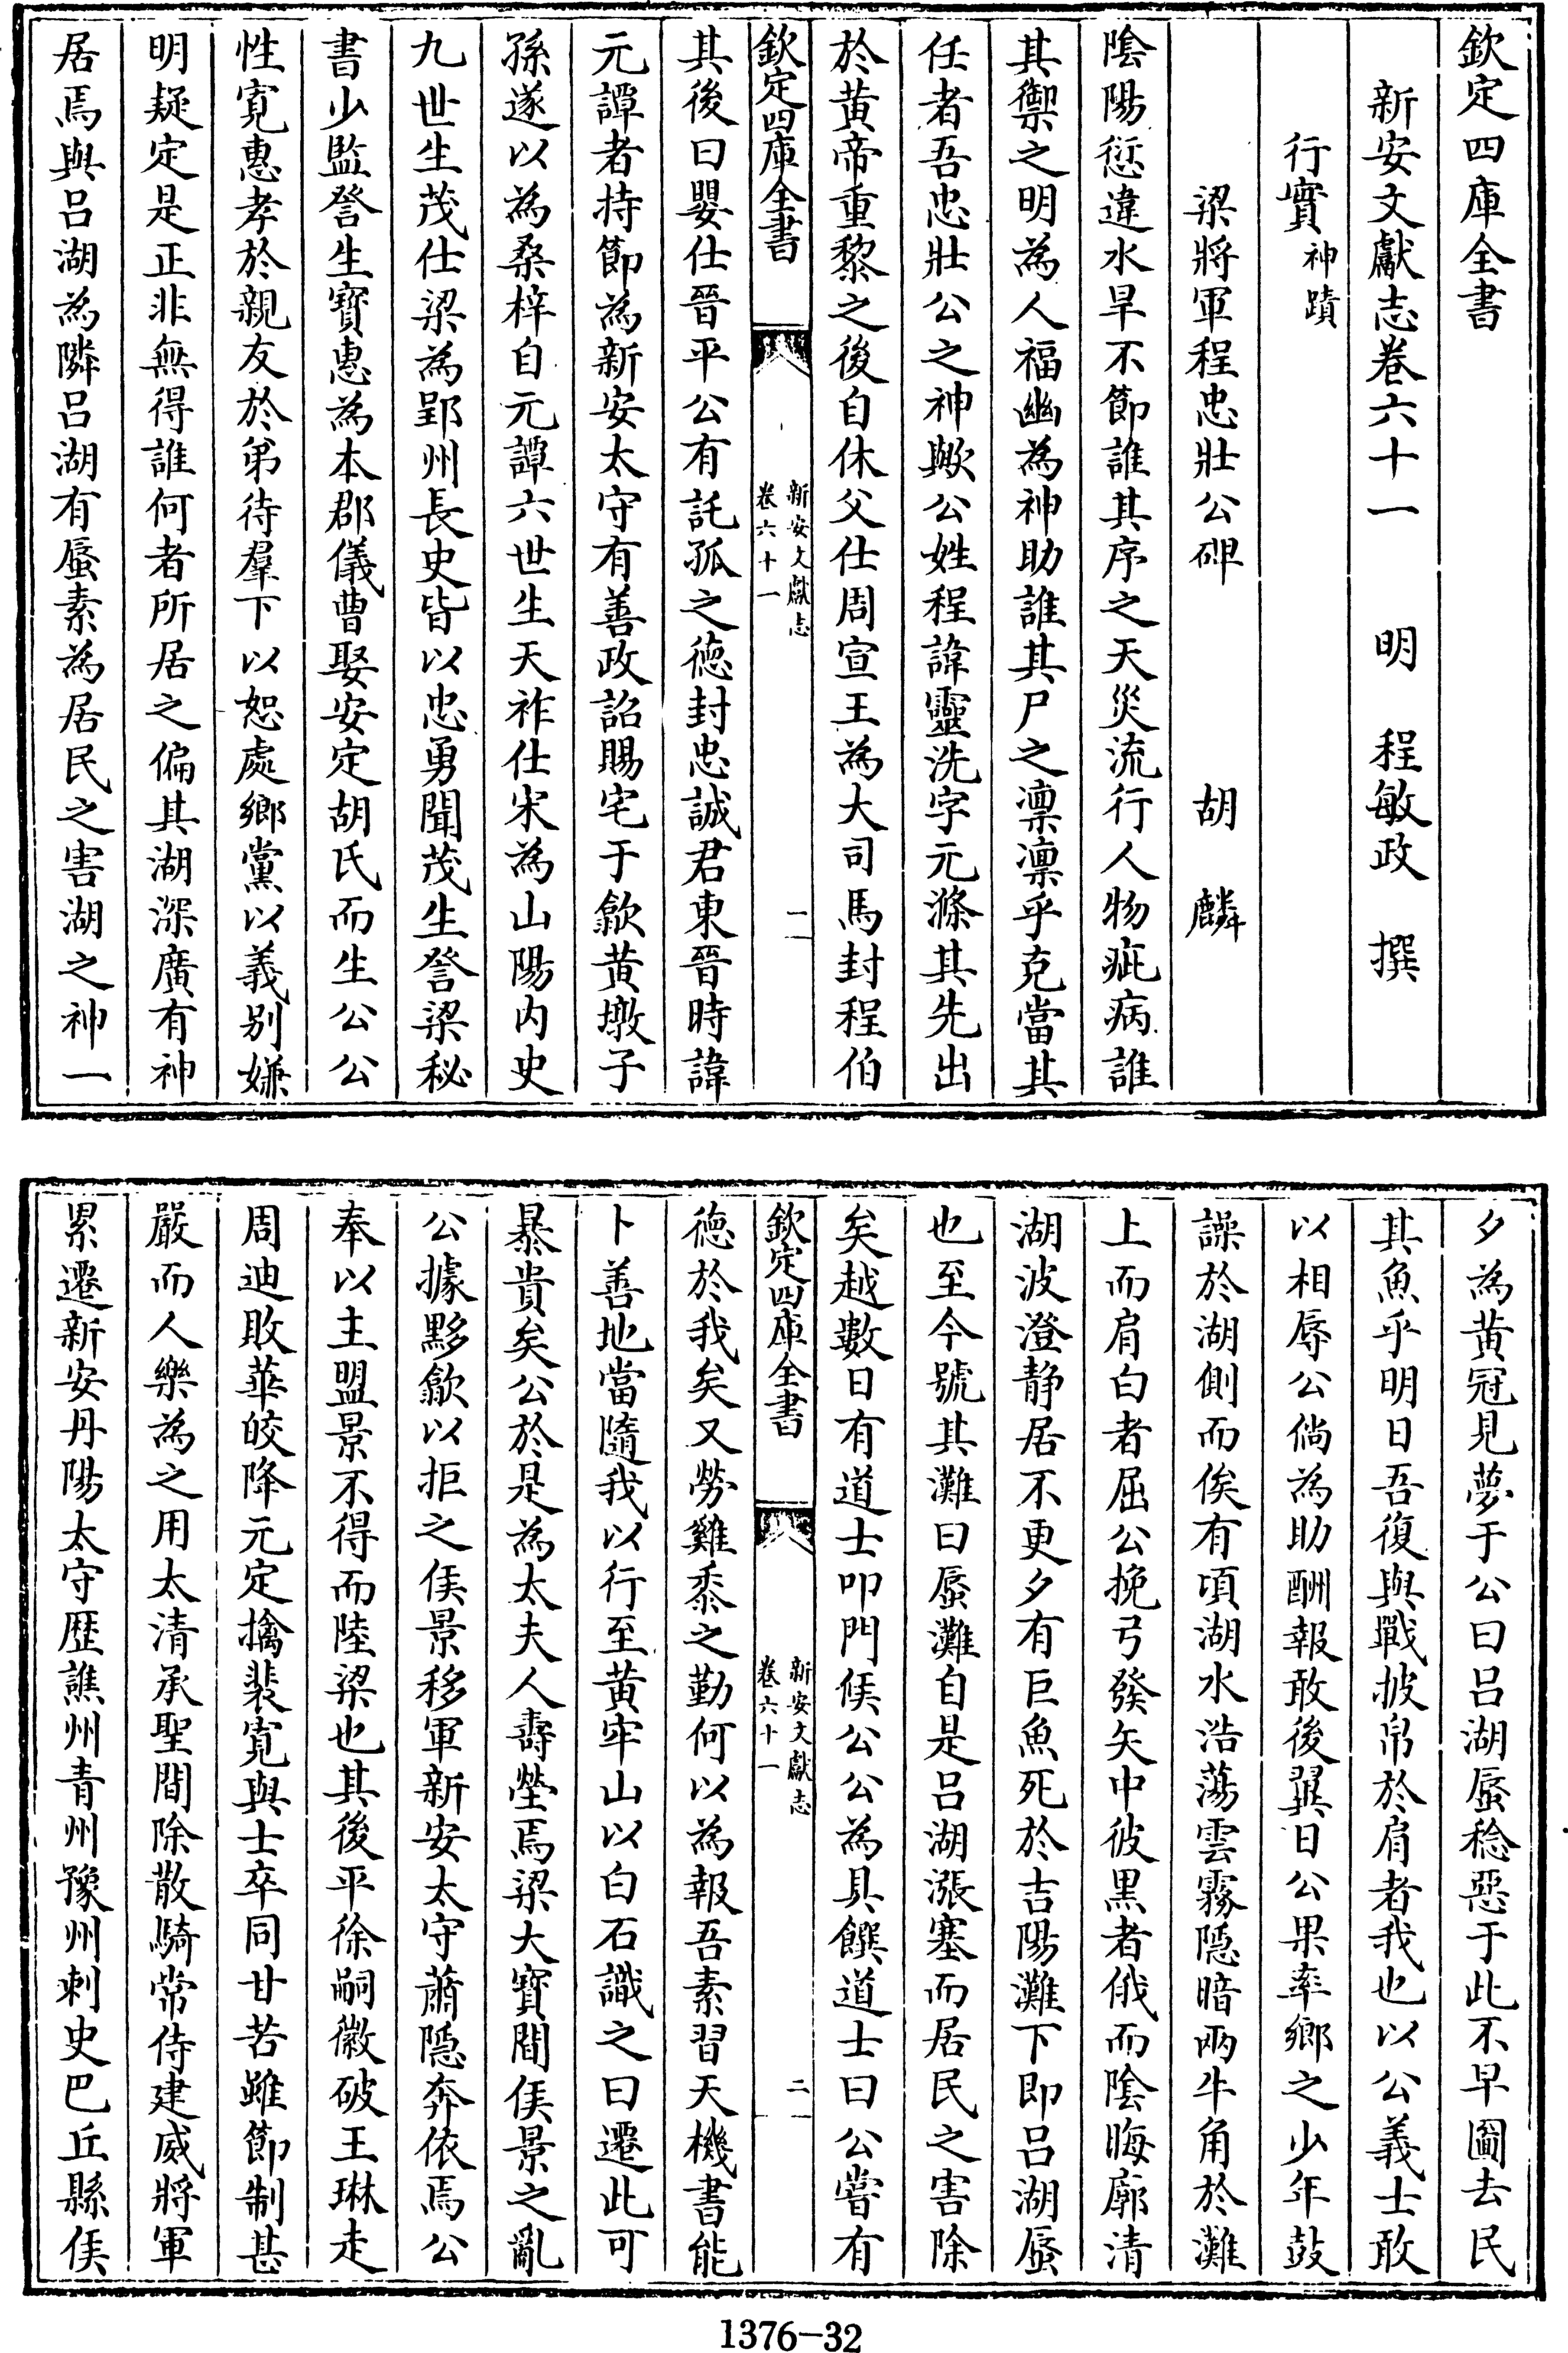 欽定四庫全書
新安文獻志卷六十一　明　程敏政　撰
行實神蹟
梁將軍程忠壯公碑　胡麟
陰陽愆違水旱不節誰其序之天災流行人物疵病誰
其禦之明為人福幽為神助誰其尸之凛凛乎克當其
任者吾忠壯公之神歟公姓程諱靈洗字元滌其先出
於黄帝重黎之後自休父仕周宣王為大司馬封程伯
欽定四庫全書
新安文獻志
卷六十一
一
其後曰嬰仕晉平公有託孤之德封忠誠君東晉時諱
元譚者持節為新安太守有善政詔賜宅于歙黄墩子
孫遂以為桑梓自元譚六世生天祚仕宋為山陽内史
九世生茂仕梁為郢州長史皆以忠勇聞茂生詧梁秘
書少監詧生寶惠為本郡儀曹娶安定胡氏而生公公
性寛惠孝於親友於弟待羣下以恕處鄉黨以義别嫌
明疑定是正非無得誰何者所居之偏其湖深廣有神
居焉與吕湖為隣吕湖有蜃素為居民之害湖之神一
夕為黄冠見夢于公曰吕湖蜃稔惡于此不早圖去民
其魚乎明日吾復與戰披帛於肩者我也以公義士敢
以相辱公倘為助酬報敢後翼日公果率鄉之少年鼓
譟於湖側而俟有頃湖水浩蕩雲霧隱暗兩牛角於灘
上而肩白者屈公挽弓發矢中彼黒者俄而陰晦廓清
湖波澄静居不更夕有巨魚死於吉陽灘下即吕湖蜃
也至今號其灘曰蜃灘自是吕湖漲塞而居民之害除
矣越數日有道士叩門候公公為具饌道士曰公嘗有
欽定四庫全書
新安文獻志
卷六十一
二
德於我矣又勞雞黍之勤何以為報吾素習天機書能
卜善地當隨我以行至黄牢山以白石識之曰遷此可
暴貴矣公於是為太夫人壽塋焉梁大寶間侯景之亂
公據黟歙以拒之侯景移軍新安太守蕭隱奔依焉公
奉以主盟景不得而陸梁也其後平徐嗣徽破王琳走
周迪敗華皎降元定擒裴寛與士卒同甘苦雖節制甚
嚴而人樂為之用太清承聖間除散騎常侍建威將軍
累遷新安丹陽太守歴譙州青州豫州刺史巴丘縣侯
1376-32